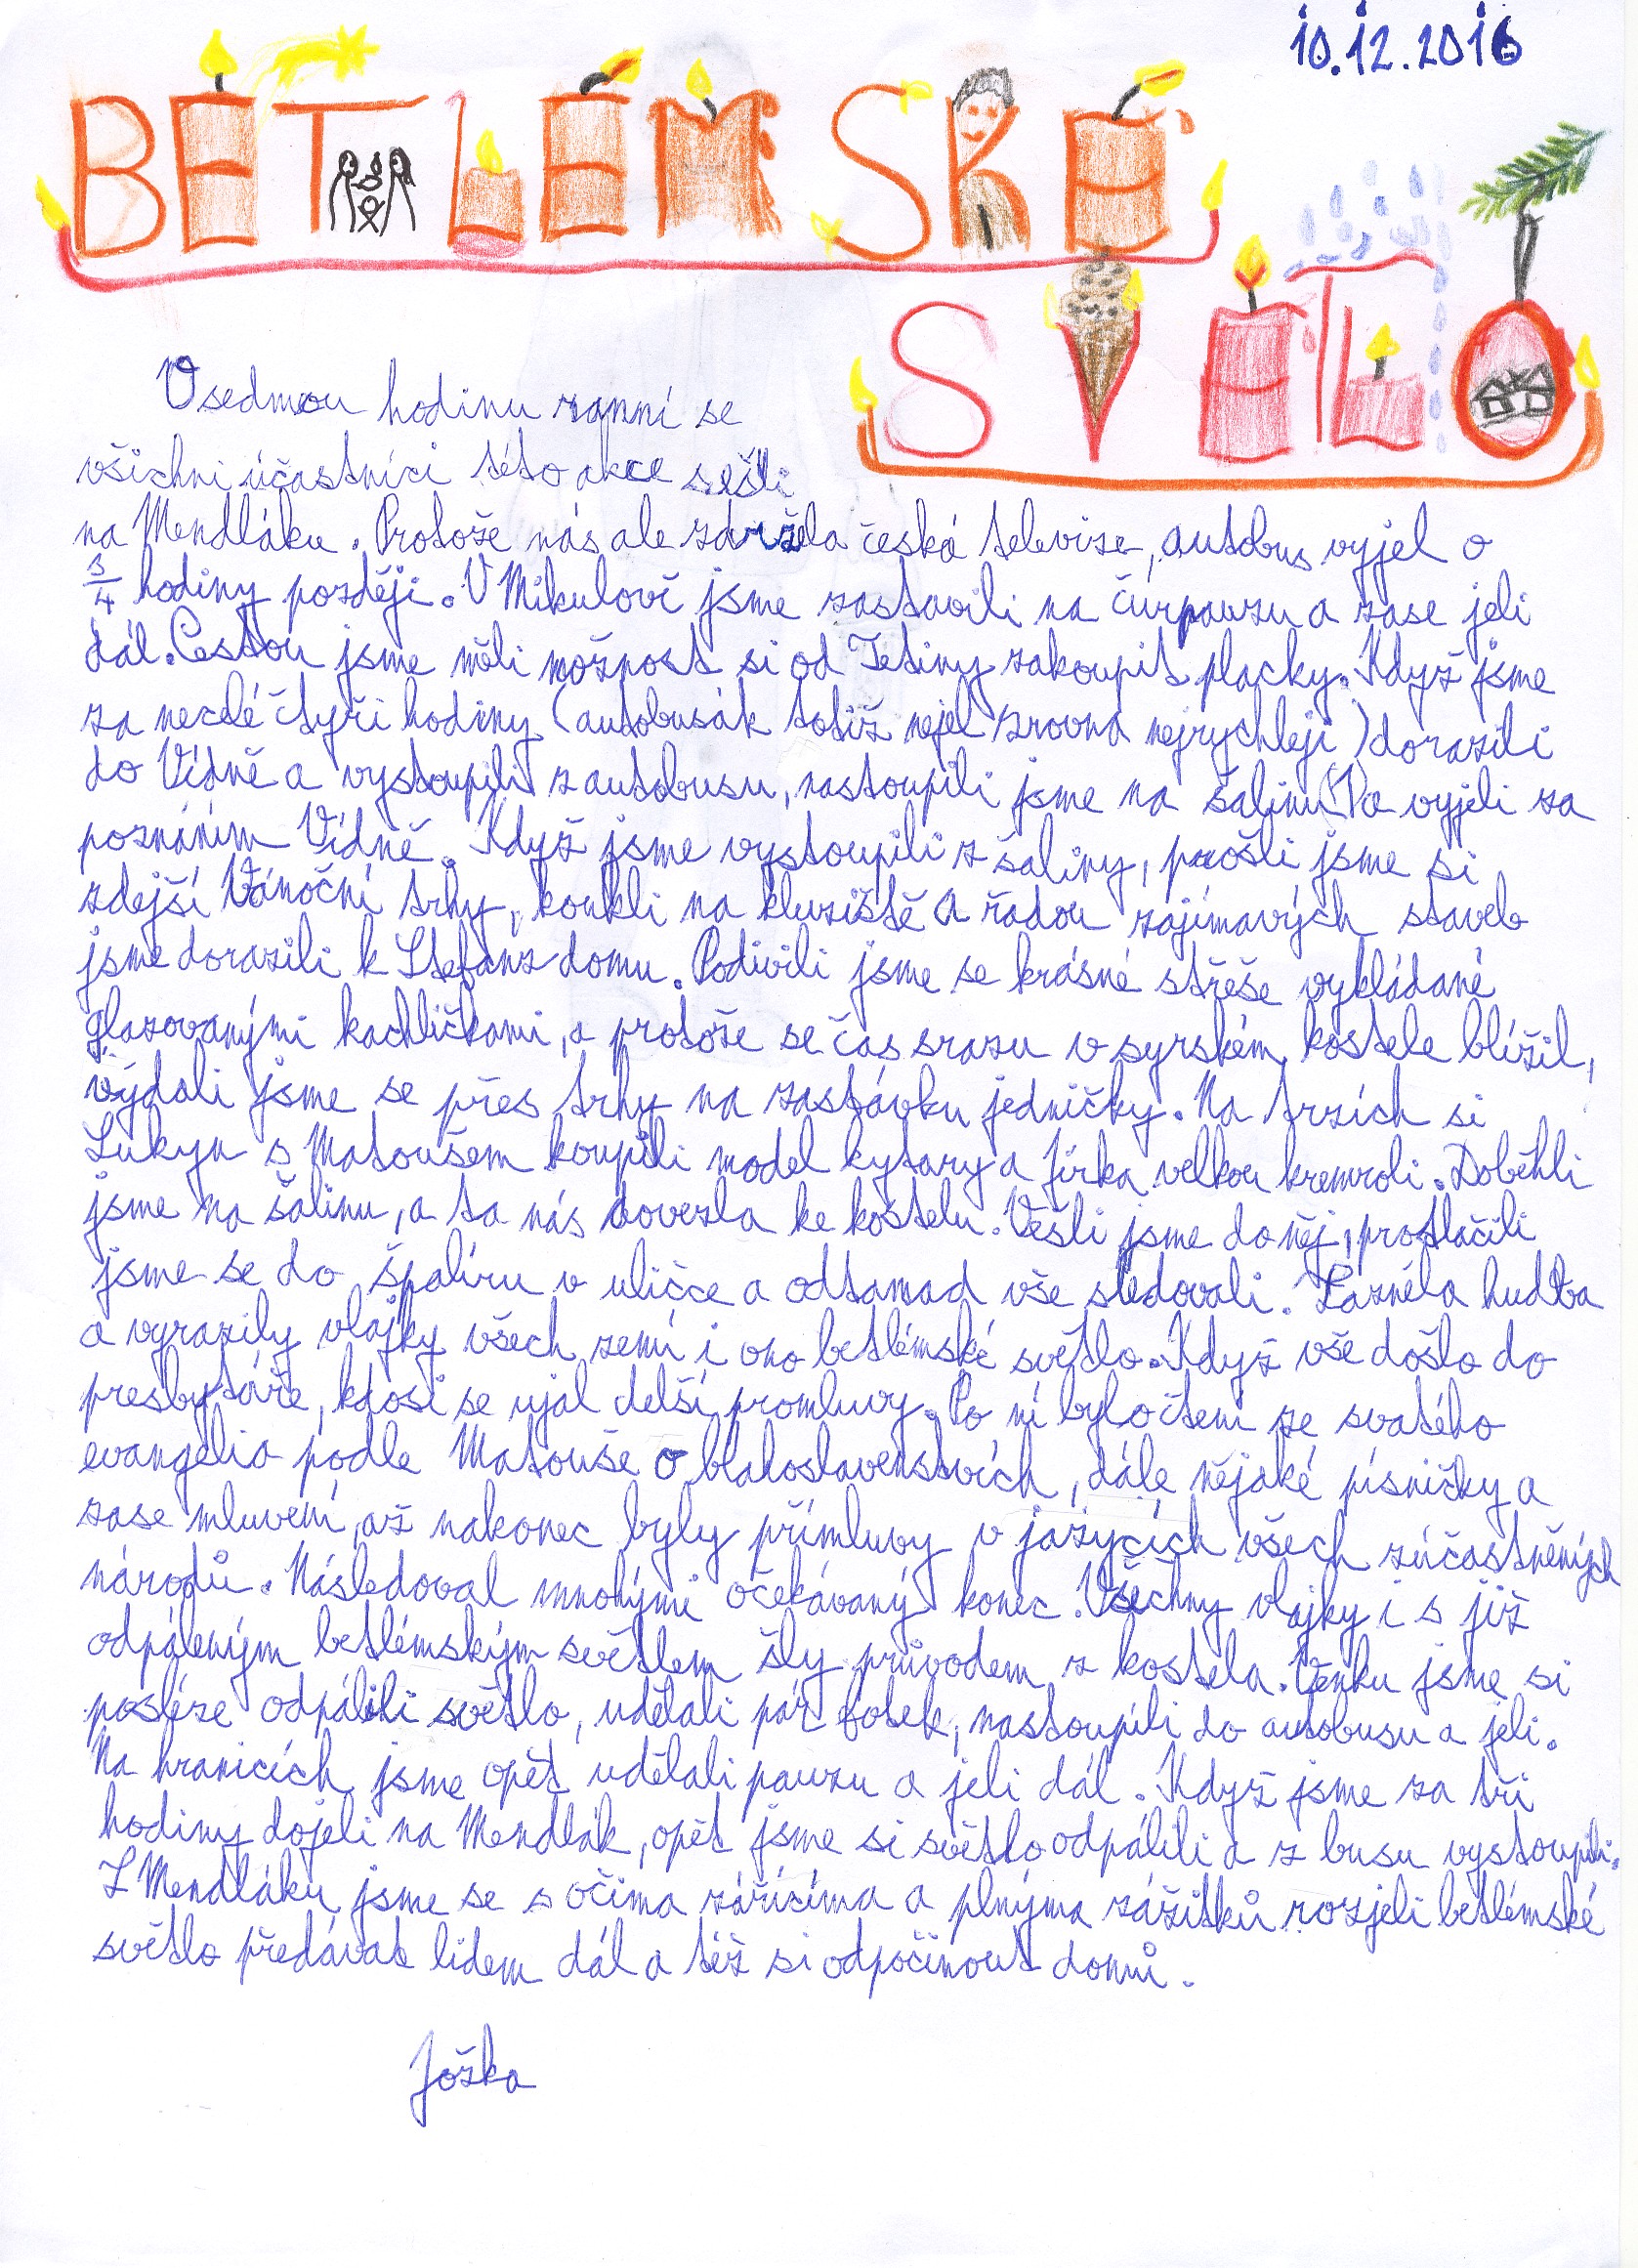 10.12.2016
BETLÉMSKÉ
SVĚTLO
V sedmou hodinu ranní se
všichni účastníci této akce sešli
na Mendláku. Protože nás ale zdržela česká televize, autobus vyjel o
3/4 hodiny později. V Mikulově jsme zastavili na čůrpauzu a zase jeli
dál. Cestou jsme měli možnost si od Tetiny zakoupit placky. Když jsme
za necelé čtyři hodiny (autobusák totiž nejel zrovna nejrychleji) dorazili
do Vídně a vystoupili z autobusu, nastoupili jsme na šalinu a vyjeli za
poznáním Vídně. Když jsme vystoupili z šaliny, prošli jsme si
zdejší Vánoční trhy, koukli na kluziště a řadou zajímavých staveb
jsme dorazili k Stefanz domu. Podivili jsme se krásné střeše vykládané
glazovanými kachličkami, a protože se čas srazu v syrském kostele blížil,
vydali jsme se přes trhy na zastávku jedničky. Na trzích si
Lukyn s Matoušem koupili model kytary a Jirka velkou kremroli. Doběhli
jsme na šalinu, a ta nás dovezla ke kostelu. Vešli jsme do něj, protlačili
jsme se do špalíru v uličce a odtamad vše sledovali. Zazněla hudba
a vyrazily vlajky všech zemí i ono betlémské světlo. Když vše došlo do
presbytáře, kdosi se ujal delší promluvy. Po ní bylo čtení ze svatého
evangelia podle Matouše o blahoslavenstvích, dále nějaké písničky a
zase mluvení, až nakonec byly přímluvy v jazycích všech zúčastněných
národů. Následoval mnohými očekávaný konec. Všechny vlajky i s již
odpáleným betlémským světlem šly průvodem z kostela. Venku jsme si
posléze odpálili světlo, udělali pár fotek, nastoupili do autobusu a jeli.
Na hranicích jsme opět udělali pauzu a jeli dál. Když jsme za tři
hodiny dojeli na Mendlák, opět jsme si světlo odpálili a z busu vystoupili.
Z Mendláku jsme se s očima zářícíma a plnýma zážitků rozjeli betlémské
světlo předávat lidem dál a též si odpočinout domů.
Jožka